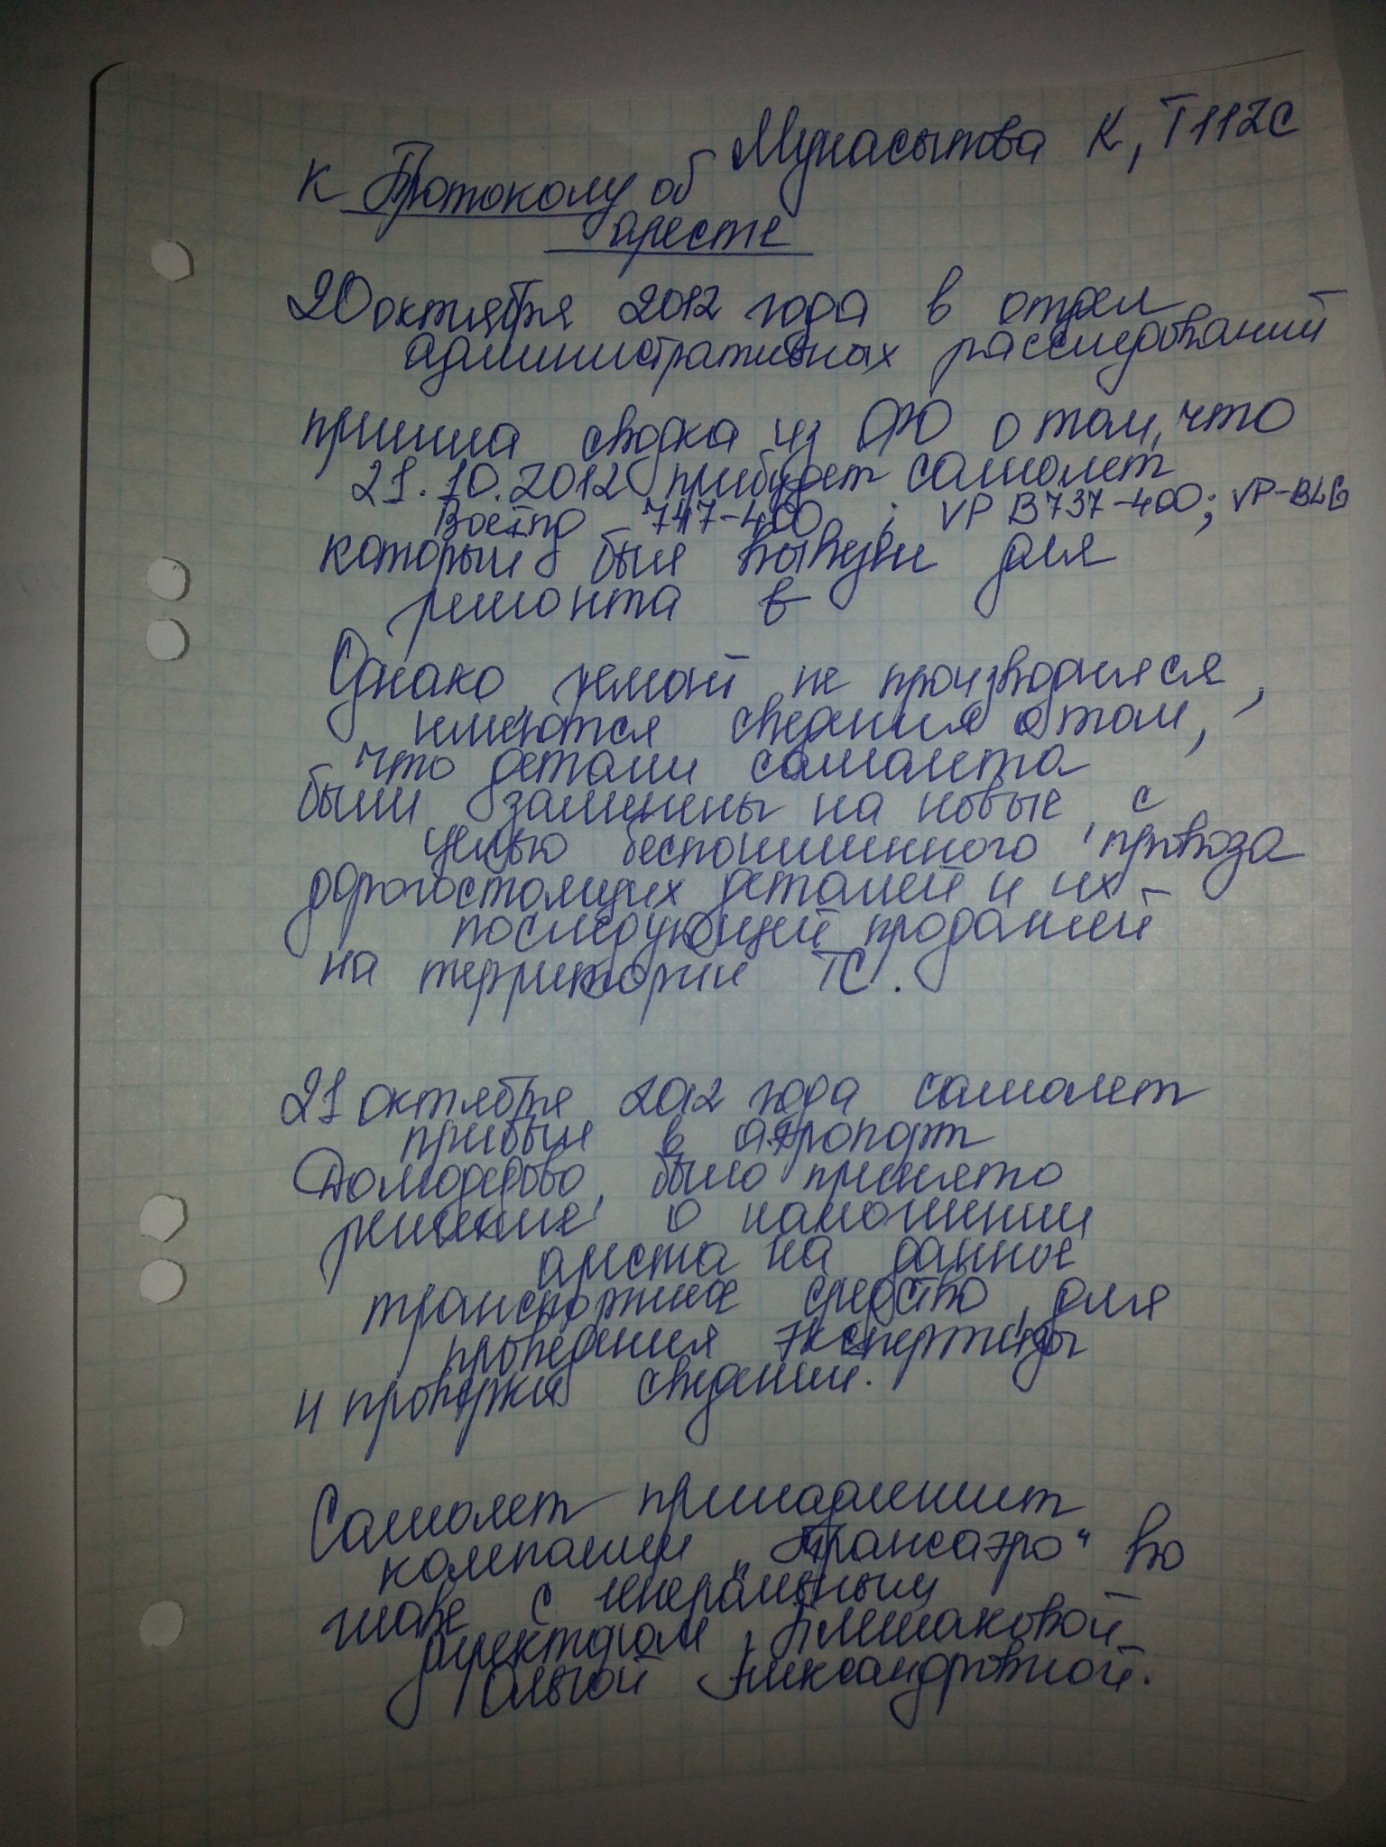 Мунасыпова К, Т112С
к Протоколу об
аресте
20 октября 2012 года в отдел
административных расследований
пришла сводка из ОФО о том, что
21.10.2012 прибудет самолет
Воеing 747-400 ; VP B737-400; VP-BLG
который был вывезен для
ремонта в
Однако ремонт не производился,
имеются сведения о том,
что детали самолета
были заменены на новые, с
целью беспошлинного провоза
дорогостоящих деталей и их
последующей продажей
на территории ТС.
21 октября 2012 года самолет
прибыл в аэропорт
Домодедово, было принято
решение о наложении
ареста на данное
транспортное средство для
проведения экспертизы
и проверки сведений.
Самолет принадлежит
компании „Трансаэро" во
главе с генеральным
директором, Плешаковой
Ольгой Александровной.